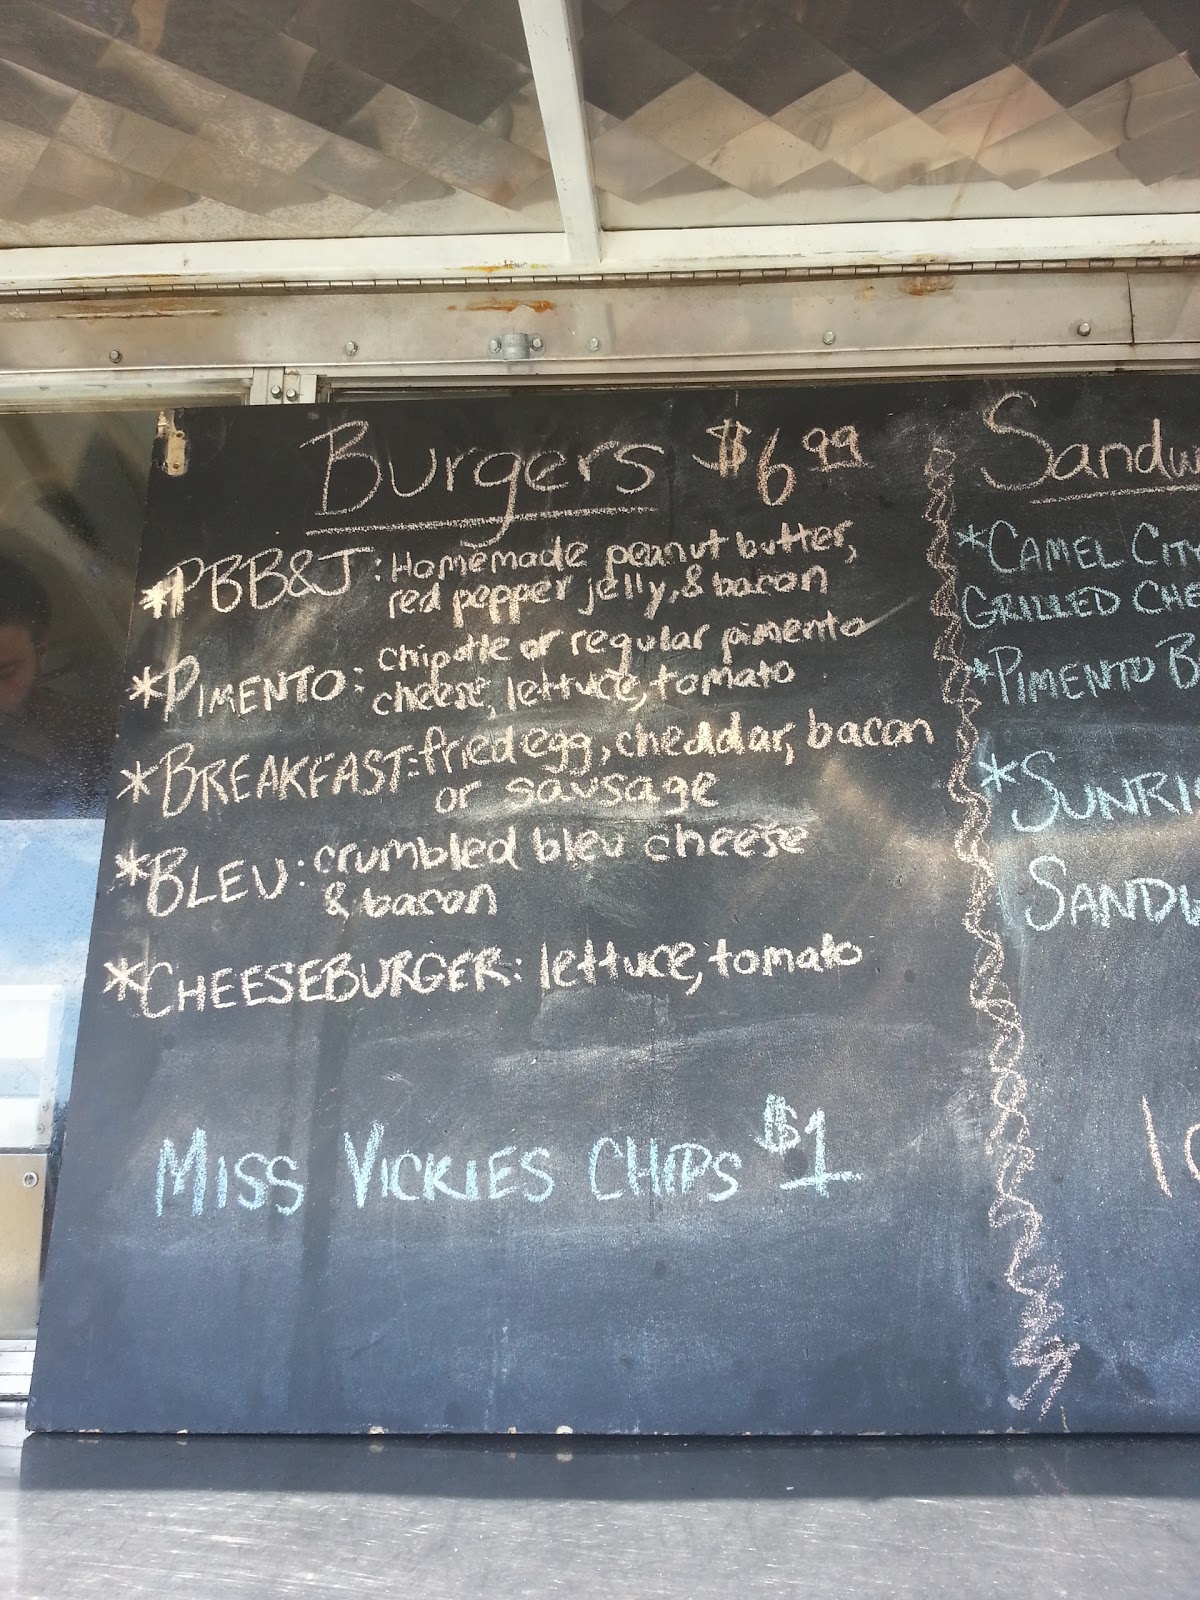 Burgers $6.99
*PBB&J: Homemade peanut butter,
red pepper jelly, & bacon
*PIMENTO: chipotle or regular pimento
cheese, lettuce, tomato
*BREAKFAST: fried egg, cheddar, bacon
or sausage
*BLEU: crumbled bleu cheese
& bacon
*CHEESEBURGER: lettuce, tomato
MISS VICKIES CHIPS $1
*CAMEL CITY
GRILLED
*PIMENTO